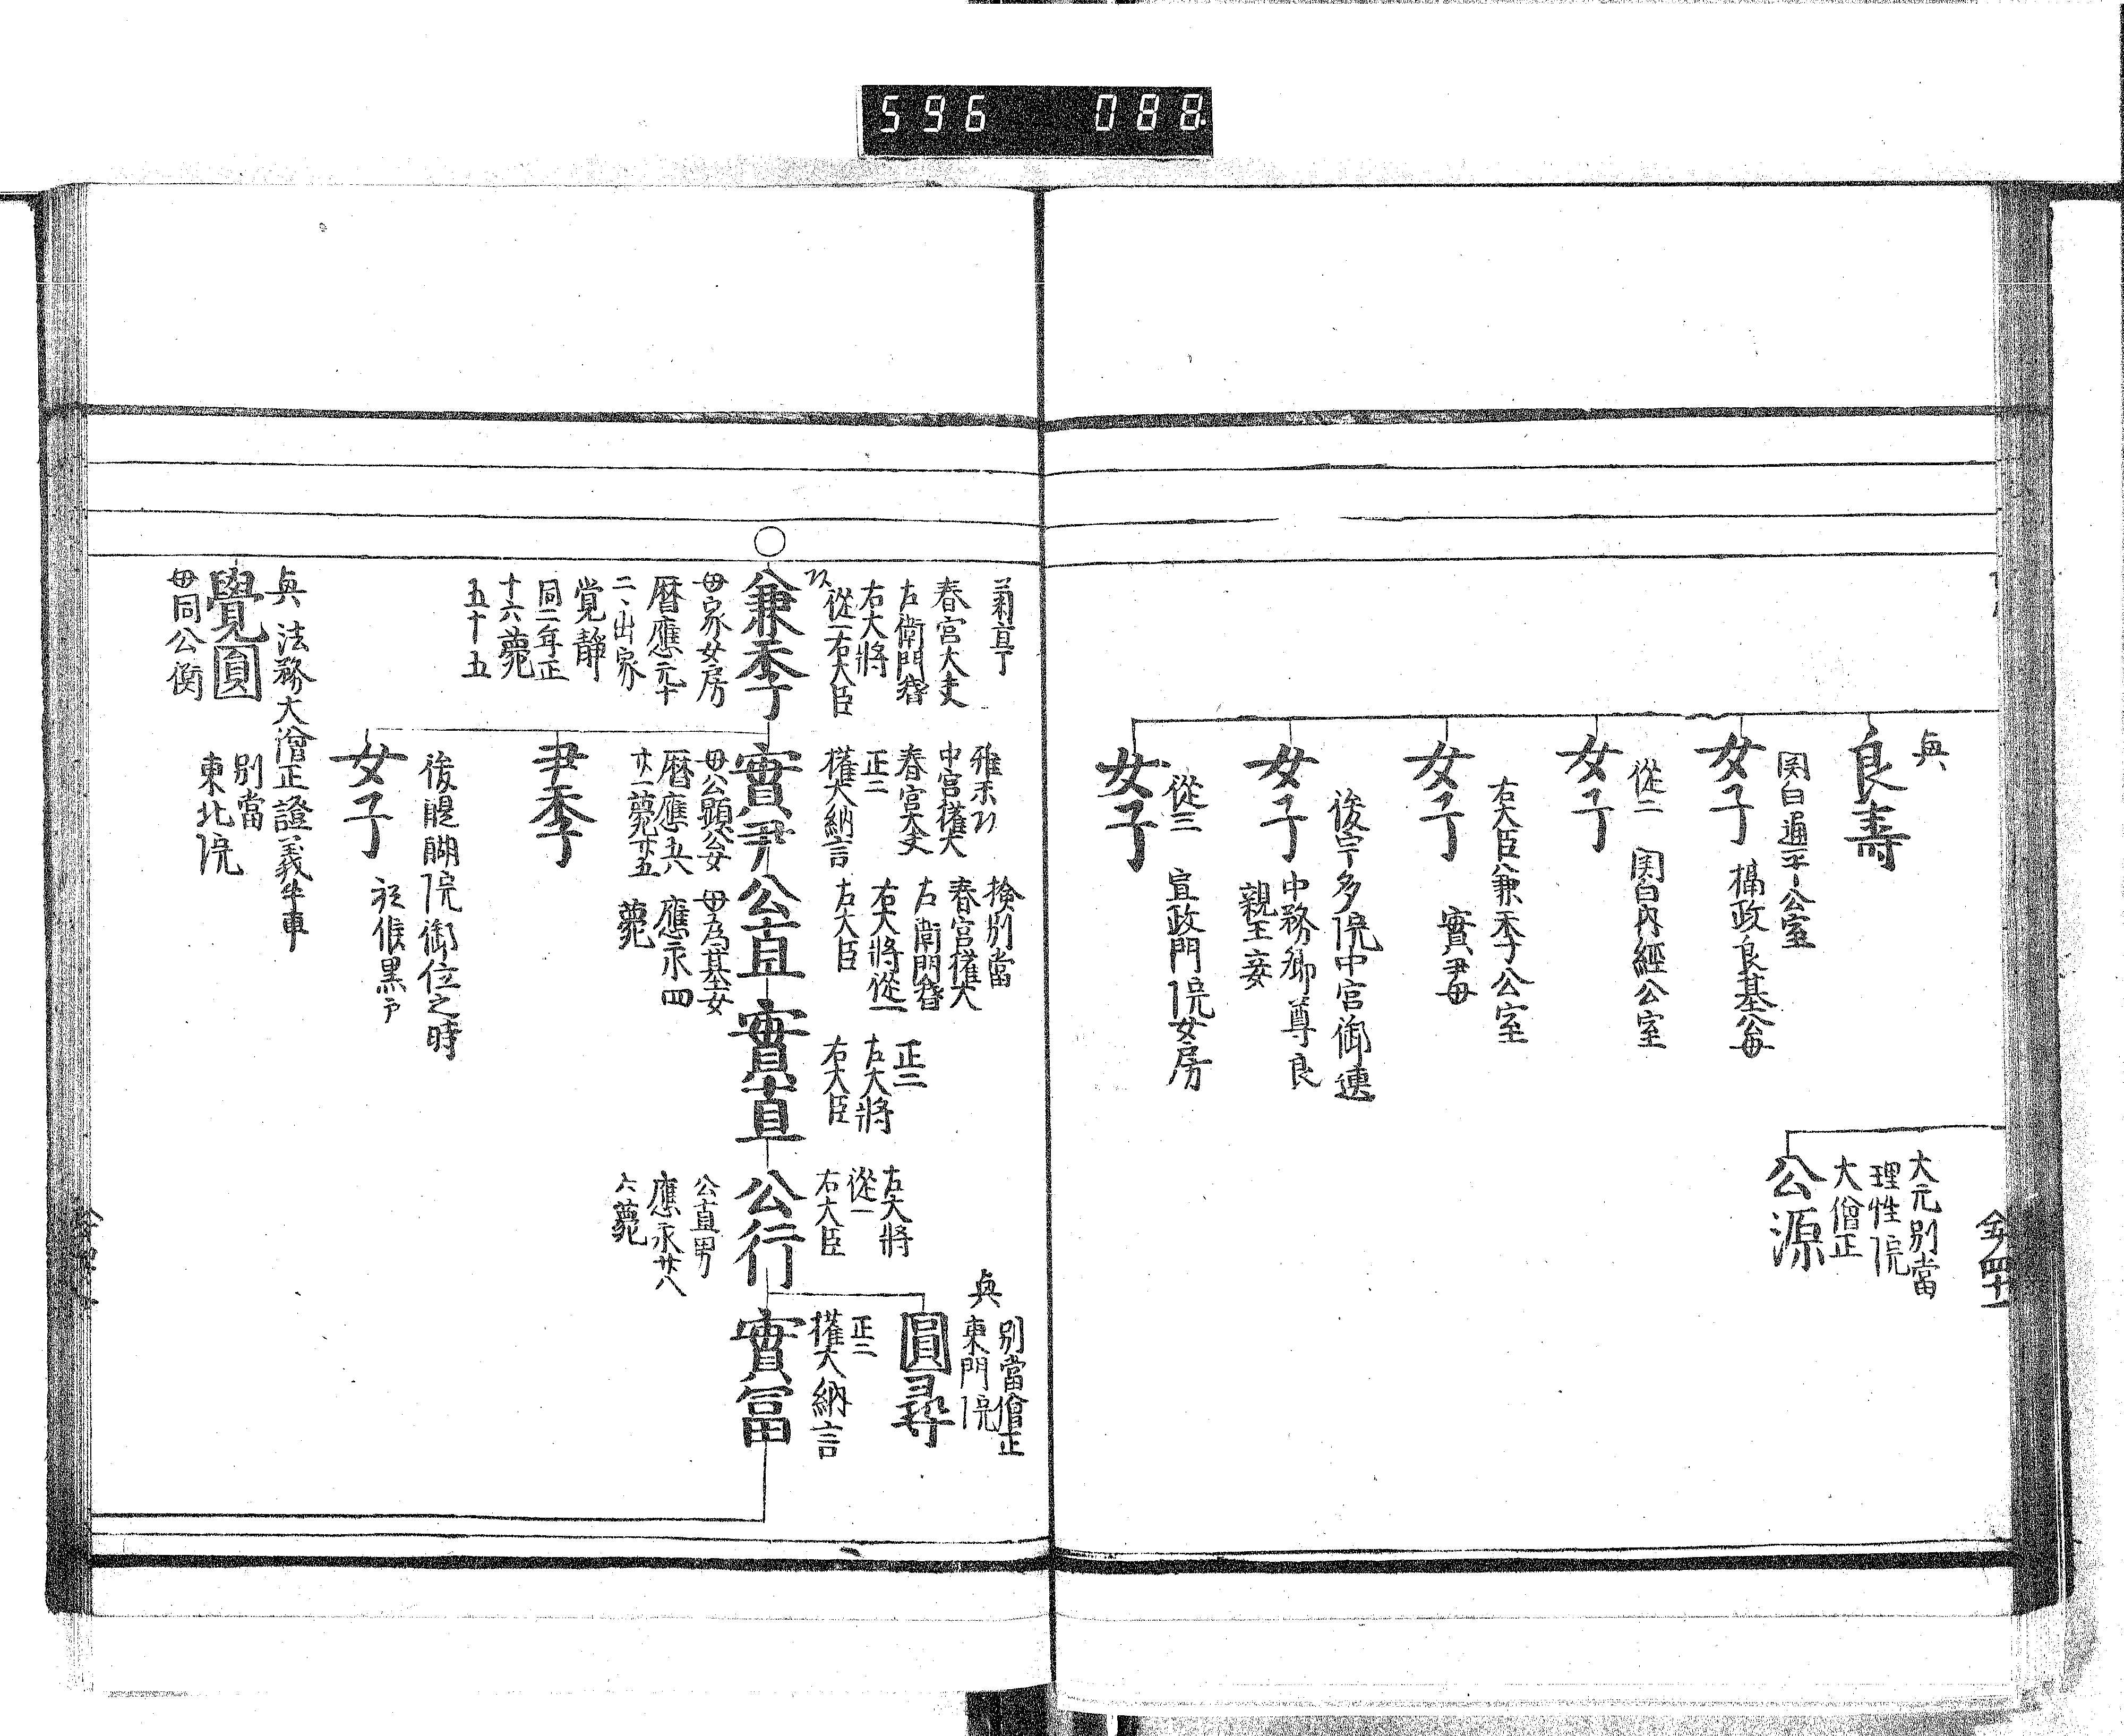 596 088
大元別當
理性院
大僧正
公源
與
良壽
関白通平公室
女子
攝政良基公母
從二 関白内經公室
女子
右大臣兼季公室
女子
實尹母
後宇多院中宮御連
女子
中務卿尊良
親王妾
從三 宣政門院女房
女子
菊亭
春宮大夫
左衛門督
右大將
從一右大臣
兼季
母家女房
暦應元十
二、出家
覚静
同二年正
十六薨
五十五
中宮權大
春宮大夫
正二
權大納言
實尹
母公顯公女
暦應五八
廿一薨廿五
尹季
後醍醐院御位之時
女子
祗候黒戸
検別當
春宮權大
左衛門督
右大將從一
左大臣
公直
母為基女
應永四
薨
正二
左大將
右大臣
實直
左大將
從一
右大臣
公行
公直男
應永廿八
六薨
與
別當僧正
東門院
圓尋
正二
權大納言
實冨
與 法務大僧正證義牛車
別當
東北院
覺圓
母同公衡